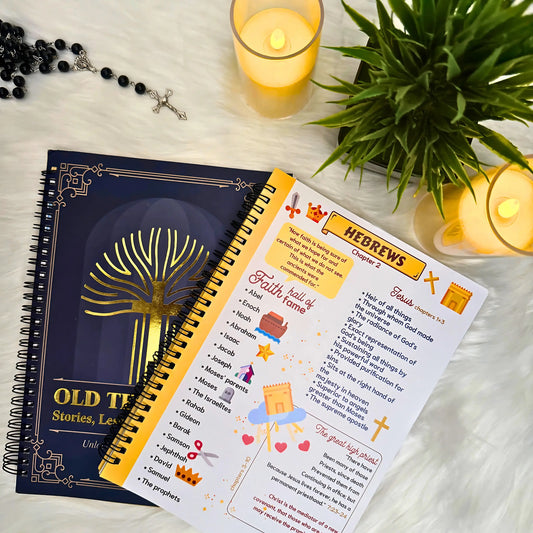 OLD TE
Stories, Les
Unlo
HEBREWS
Chapter 2
"Now faith is being sure of
what we hope for and
certain of what we do not see.
This is what the
ancients were
commended for."
Faith hall of
fame
• Abel
• Enoch
• Noah
• Abraham
• Isaac
• Jacob
• Joseph
• Moses' parents
• Moses
• The Israelites
• Rahab
• Gideon
• Barak
• Samson
• Jephthah
• David
• Samuel
• The prophets
Jesus chapters 1+3
• Heir of all things
• Through whom God made
the universe
• The radiance of God's
glory
• Exact representation of
God's being
• Sustaining all things by
his powerful word
• Provided purification for
sins
• Sits at the right hand of
the
majesty in heaven
• Superior to angels
• greater than Moses
• The supreme apostle
chapters 3-10
The great high priest!
"There have
Been many of those
Priests, since death
Prevented them from
Continuing in office; but
Because Jesus lives forever, he has a
permanent priesthood." 7:23-24
Christ is the mediator of a new
covenant, that those who are
may receive the pro